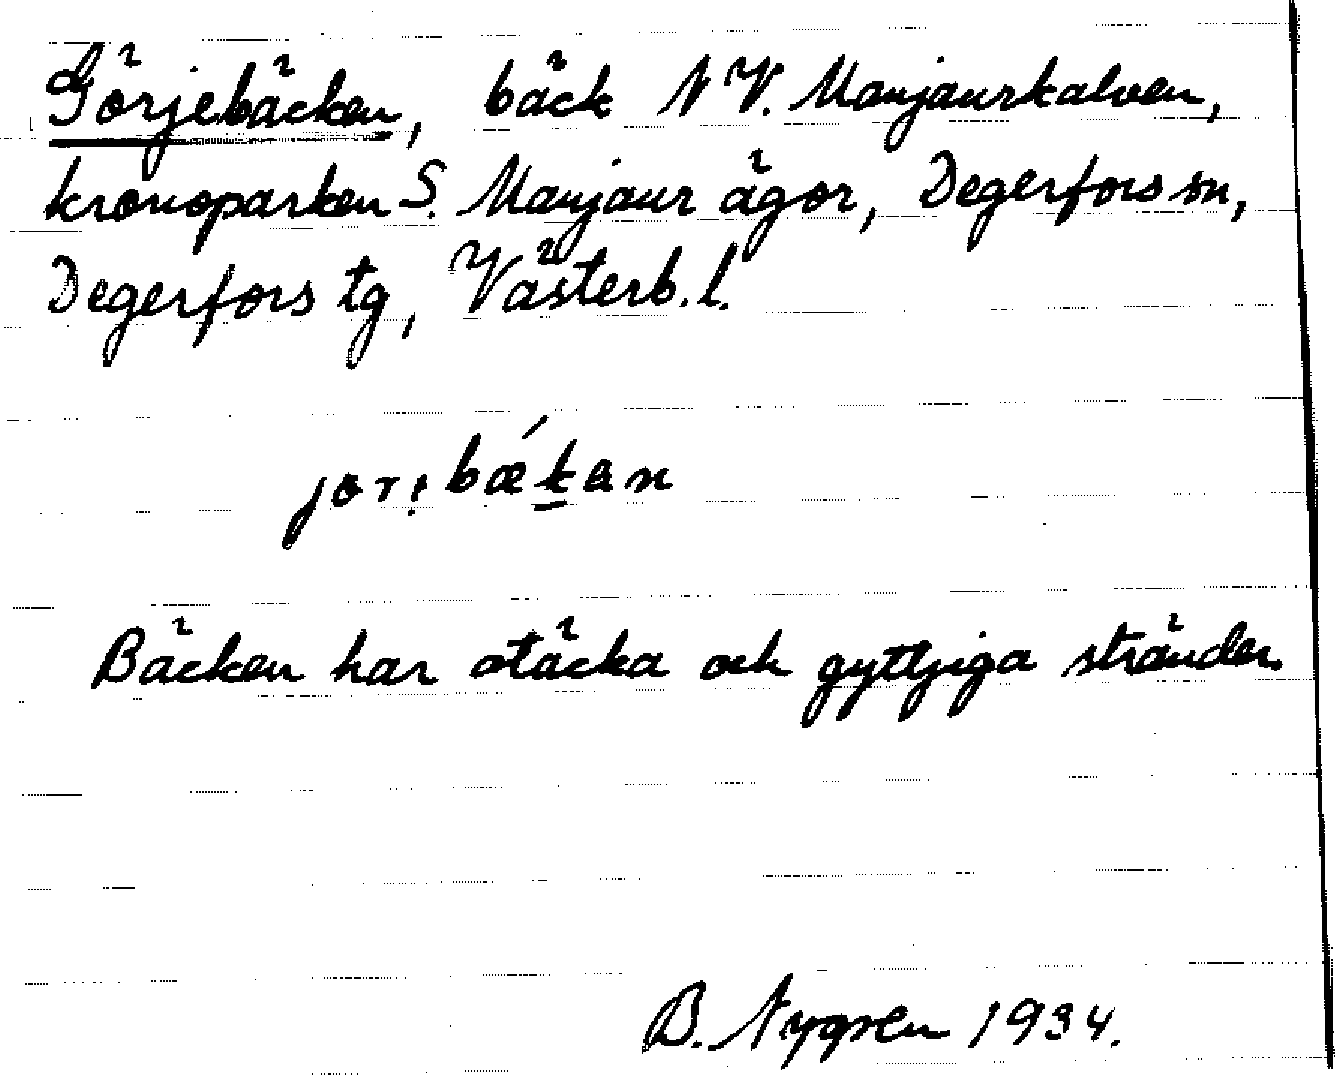 Görjebäcken, bäck NV. Manjaurkalven,
kronoparken S. Manjaur ägor, Degerfors sn,
Degerfors tg, Västerb. l.
Bäcken har otäcka och gyttjiga stränder.
B. Nygren 1934.